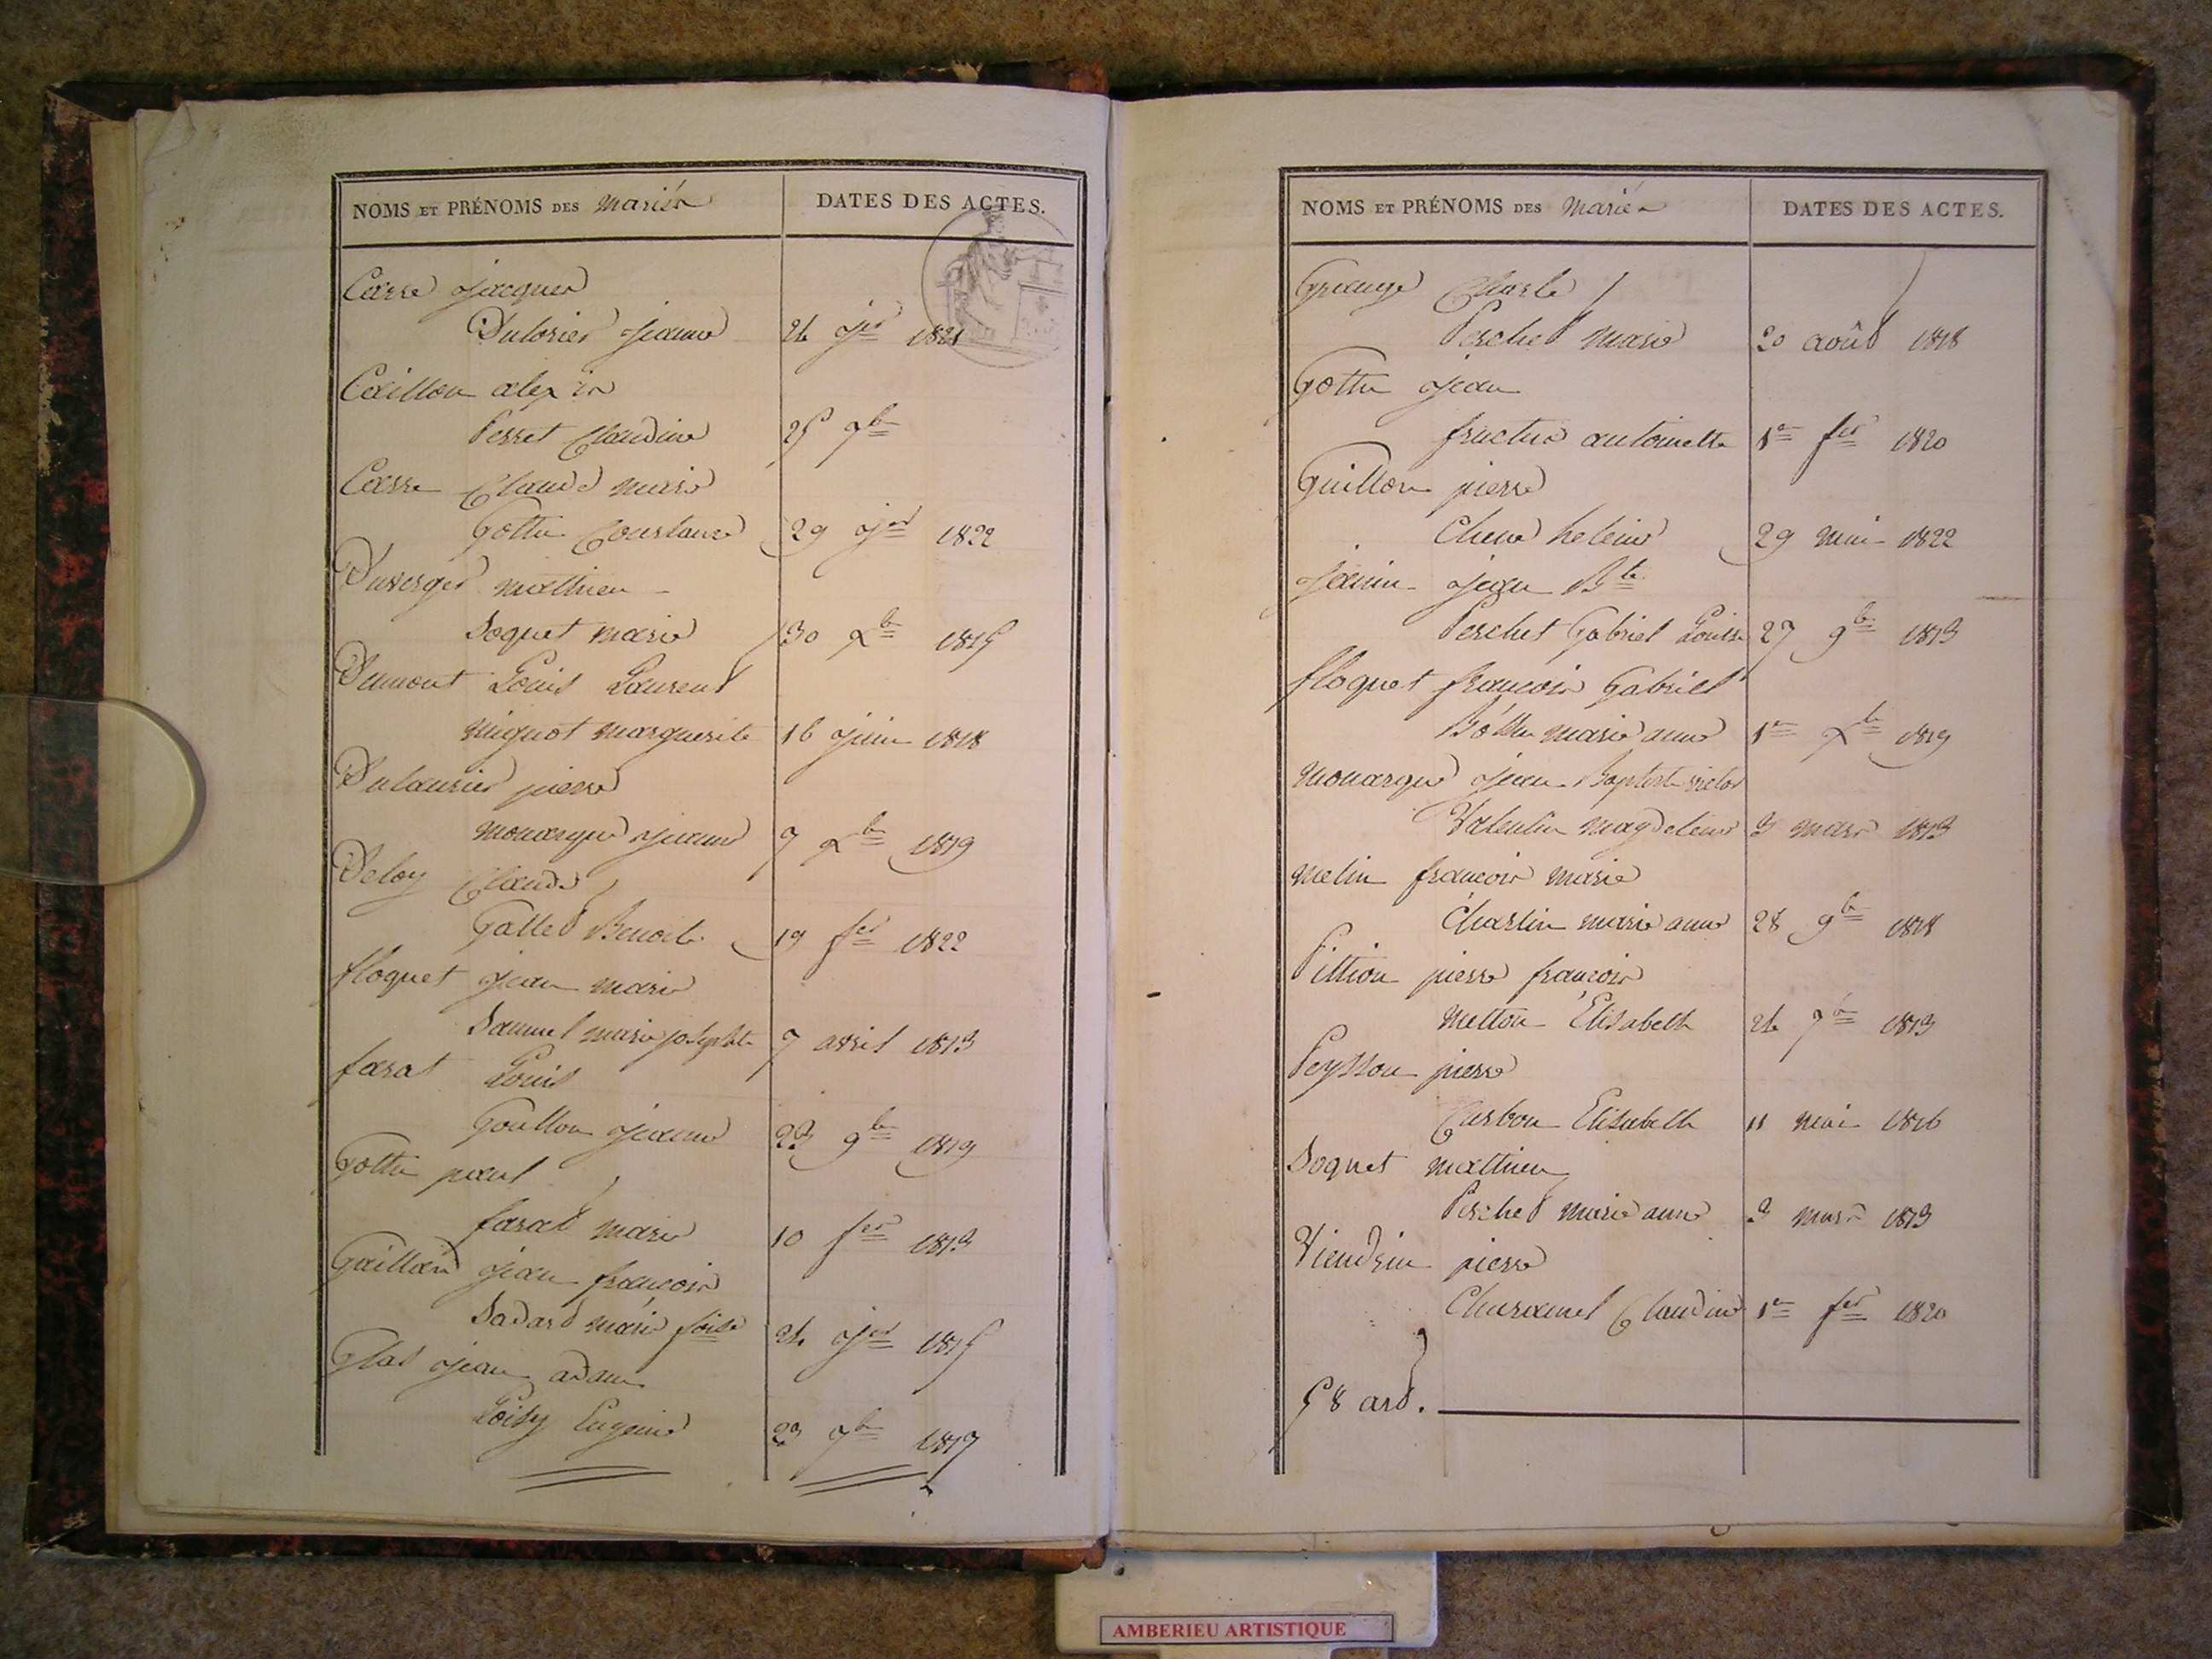 NOMS ET PRÉNOMS DES mariés DATES DES ACTES.
Casse Jacques
Dulorier Jeanne 26 jer 1821
Caillon alexis
Perret Claudine 25 9bre
Casse Claude marie
Gottu Constance 29 jer 1822
Duverger mathieu
Soquet marie 30 Xbre 1815
Dumont Louis Laurent
mignot marguerite 16 juin 1818
Dulaurier pierre
monarque Jeanne 7 Xbre 1819
Deloy Claude
Gallet Benoite 19 fer 1822
floquet jean marie
Samuel marie josephte 7 avril 1813
farat Louis
Goullon Jeanne 23 9bre 1819
Gottu paul
farat marie 10 fer 1813
Gaillard jean françois
Sadard marie foise 24 jer 1815
Glas jean adam
Loisy Eugenie 23 7bre 1817
NOMS ET PRÉNOMS DES mariés DATES DES ACTES.
Grange Charle
Perchet marie 20 août 1818
Gottu jean
fructus antoinette 1er fer 1820
Guillon pierre
Chene helene 29 mai 1822
Janin jean Bte
Perchet Gabriel Louise 27 9bre 1813
floquet françois Gabriel
marie anne 1er Xbre 1819
monarque jean Baptiste victor
Valentin magdeleine 3 mars 1813
melin françois marie
Charlin marie anne 28 9bre 1818
Pittion pierre françois
metton Elisabeth 26 7bre 1813
Peysson pierre
Carbon Elisabeth 11 mai 1816
Soquet mathieu
Perchet marie anne 3 mars 1813
Viendrin pierre
Charamel Claudine 1er fer 1820
58 ard.
AMBERIEU ARTISTIQUE